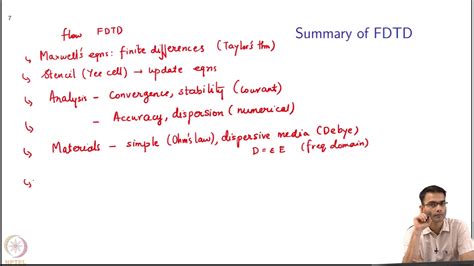 7
flow FDTD
Summary of FDTD
↳ Maxwell's eqns: finite differences (Taylor's thm)
↳ Stencil (Yee cell) → update eqns
↳ Analysis – Convergence, stability (Courant)
↳ – Accuracy, dispersion (numerical)
↳ Materials – simple (Ohm's law), dispersive media (Debye)
D = ε E (freq domain)
↳
NPTEL